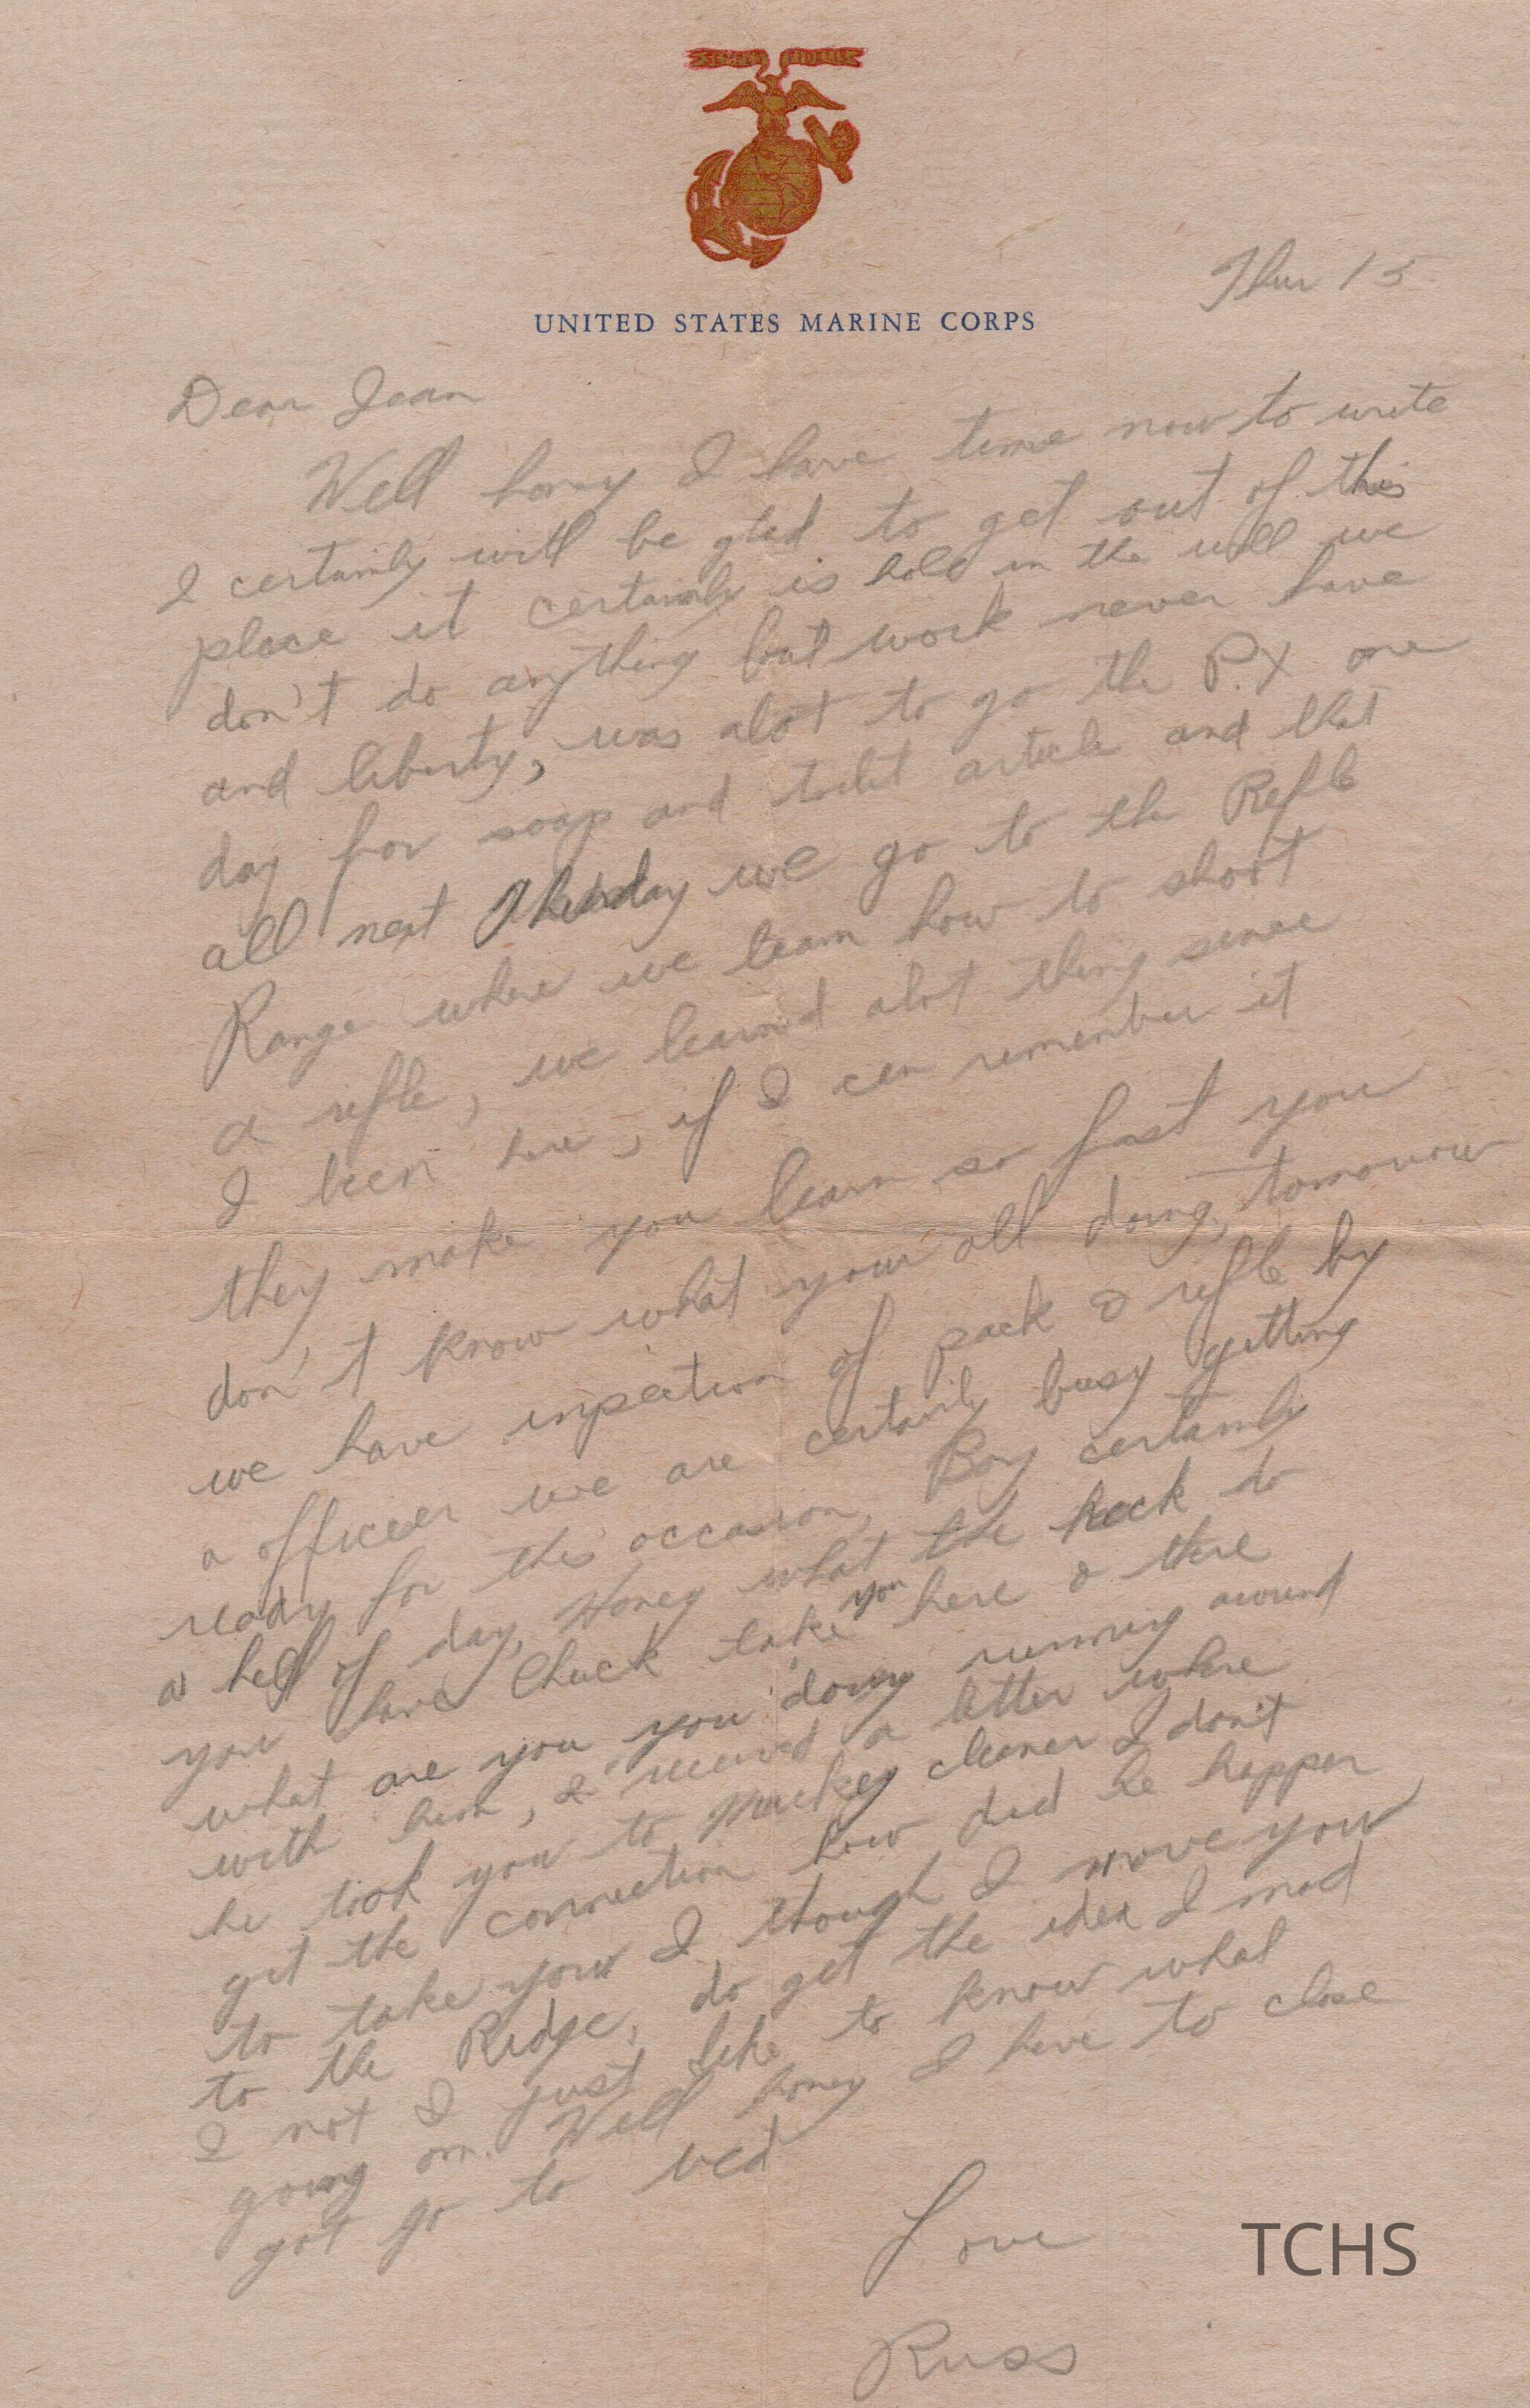 UNITED STATES MARINE CORPS
Thur 15
Dear Jean
Well honey I have time now to write
I certainly will be glad to get out of this
place it certainly is hole in the wall we
don't do anything but work never have
and liberty, was alot to go the P.X one
day for soap and toilet article and that
all next Thursday we go to the Rifle
Range where we learn how to shoot
a rifle, we learned alot thing since
I been here, if I can remember it
they make you learn so fast you
don't know what your all doing, tomorrow
we have inpection of pack & rifle by
a officeer we are certainly busy getting
ready for this occasion, Boy certainly
a hell of day, Honey what the heck do
you have Chuck take you here & there
what are you you doing running around
with him, I received a letter where
he took you to Mackey cleaner I don't
get the connection how did he happen
to take you I though I move you
to the Ridge, do get the idea I mad
I not I just like to know what
going on. Well honey I have to close
got go to bed
Love
Russ
TCHS